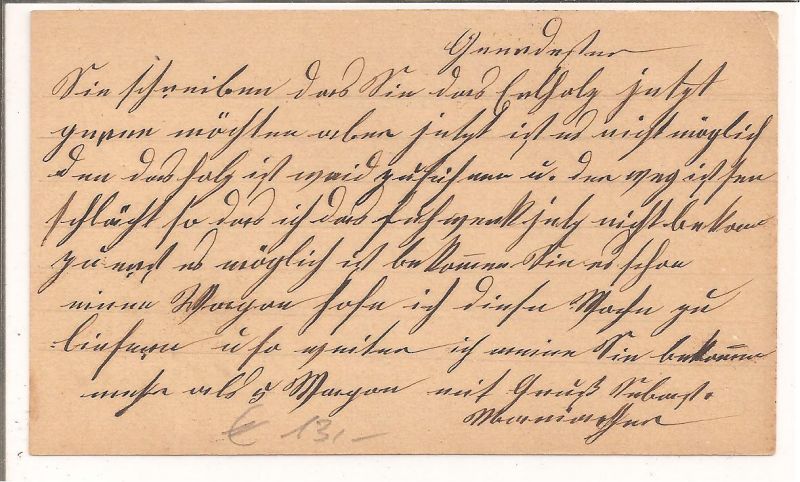 Geerdester
Sie schreiben das Sie das Erlholz jetzt
gerne möchten aber jetzt ist es nicht möglich
den das holz ist weid zu führen u. der weg ist ser
schlächt so das ich das Fuhrwerk jetz nicht bekom
zu erst es möglich ist bekommen Sie es schon
einen Wagon hofe ich diese Woche zu
liefern u so weiter ich meine Sie bekommen
mehr als 5 Wagon mit Gruß Sebast.
€ 13,-